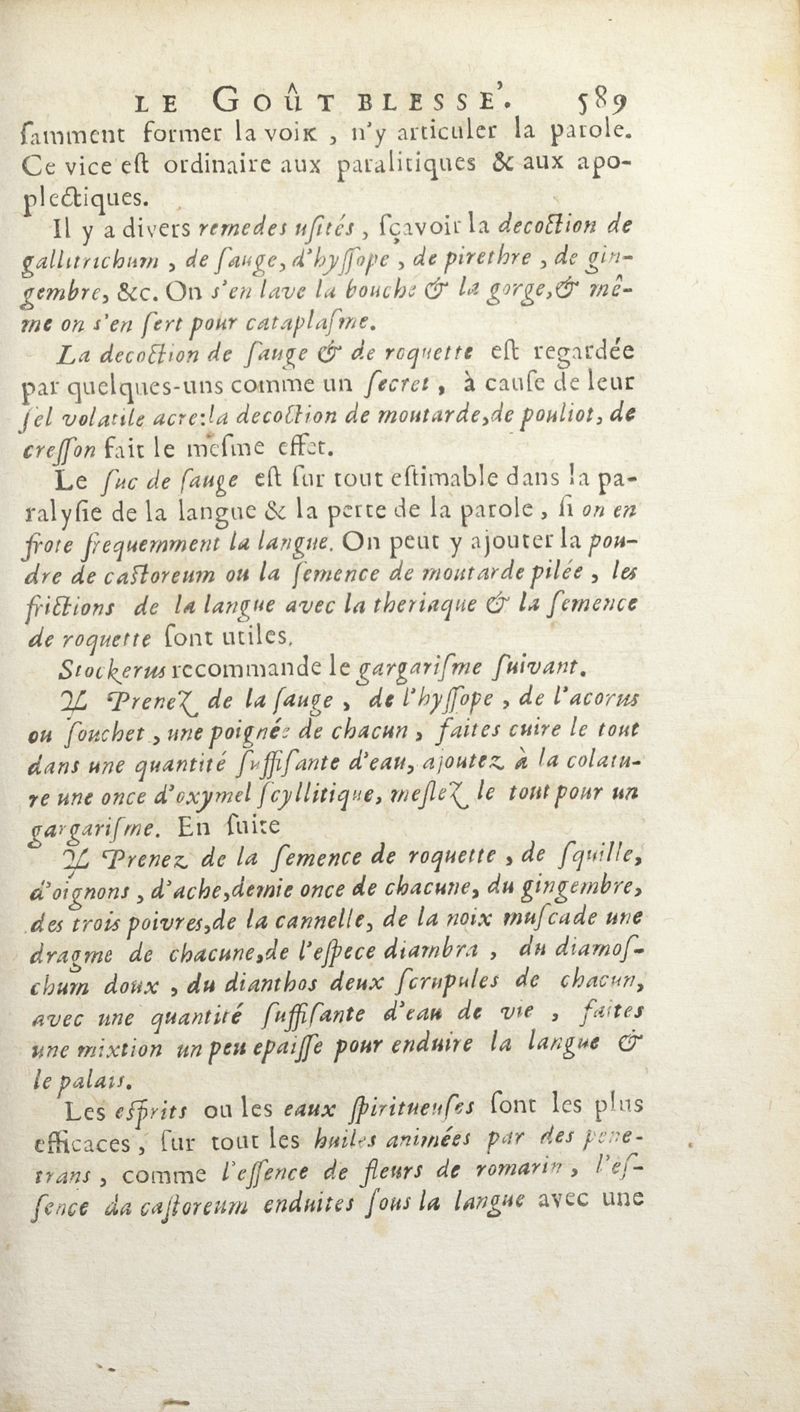 LE GOÛT BLESSE'. 589
ſamment former la voix , n'y articuler la parole.
Ce vice eſt ordinaire aux paralitiques & aux apo-
plectiques.
Il y a divers remedes uſités , ſçavoir la decoction de
gallitrichum , de ſauge, d'hyſſope , de pirethre , de gin-
gembre, &c. On s'en lave la bouche & la gorge,& mê-
me on s'en ſert pour cataplaſme.
La decoction de ſauge & de roquette eſt regardée
par quelques-uns comme un ſecret , à cauſe de leur
ſel volatile acre:la decoction de moutarde,de pouliot, de
creſſon fait le meſme effet.
Le ſuc de ſauge eſt ſur tout eſtimable dans la pa-
ralyſie de la langue & la perte de la parole , ſi on en
frote frequemment la langue. On peut y ajouter la pou-
dre de caſtoreum ou la ſemence de moutarde pilée , les
frictions de la langue avec la theriaque & la ſemence
de roquette ſont utiles.
Stockerus recommande le gargariſme ſuivant.
♃ Prenez de la ſauge , de l'hyſſope , de l'acorus
ou ſouchet , une poignée de chacun , faites cuire le tout
dans une quantité ſuffiſante d'eau, ajoutez à la colatu-
re une once d'oxymel ſcyllitique, meſlez le tout pour un
gargariſme. En ſuite
♃ Prenez de la ſemence de roquette , de ſquille,
d'oignons , d'ache,demie once de chacune, du gingembre,
des trois poivres,de la cannelle, de la noix muſcade une
dragme de chacune,de l'eſpece diambra , du diamoſ-
chum doux , du dianthos deux ſcrupules de chacun,
avec une quantité ſuffiſante d'eau de vie , faites
une mixtion un peu epaiſſe pour enduire la langue &
le palais.
Les eſprits ou les eaux ſpiritueuſes ſont les plus
efficaces , ſur tout les huiles animées par des pene-
trans , comme l'eſſence de fleurs de romarin , l'eſ-
ſence da caſtoreum enduites ſous la langue avec une